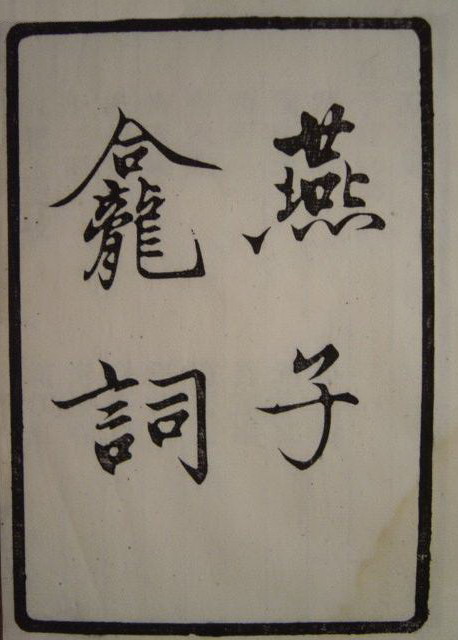 燕子
龕詞